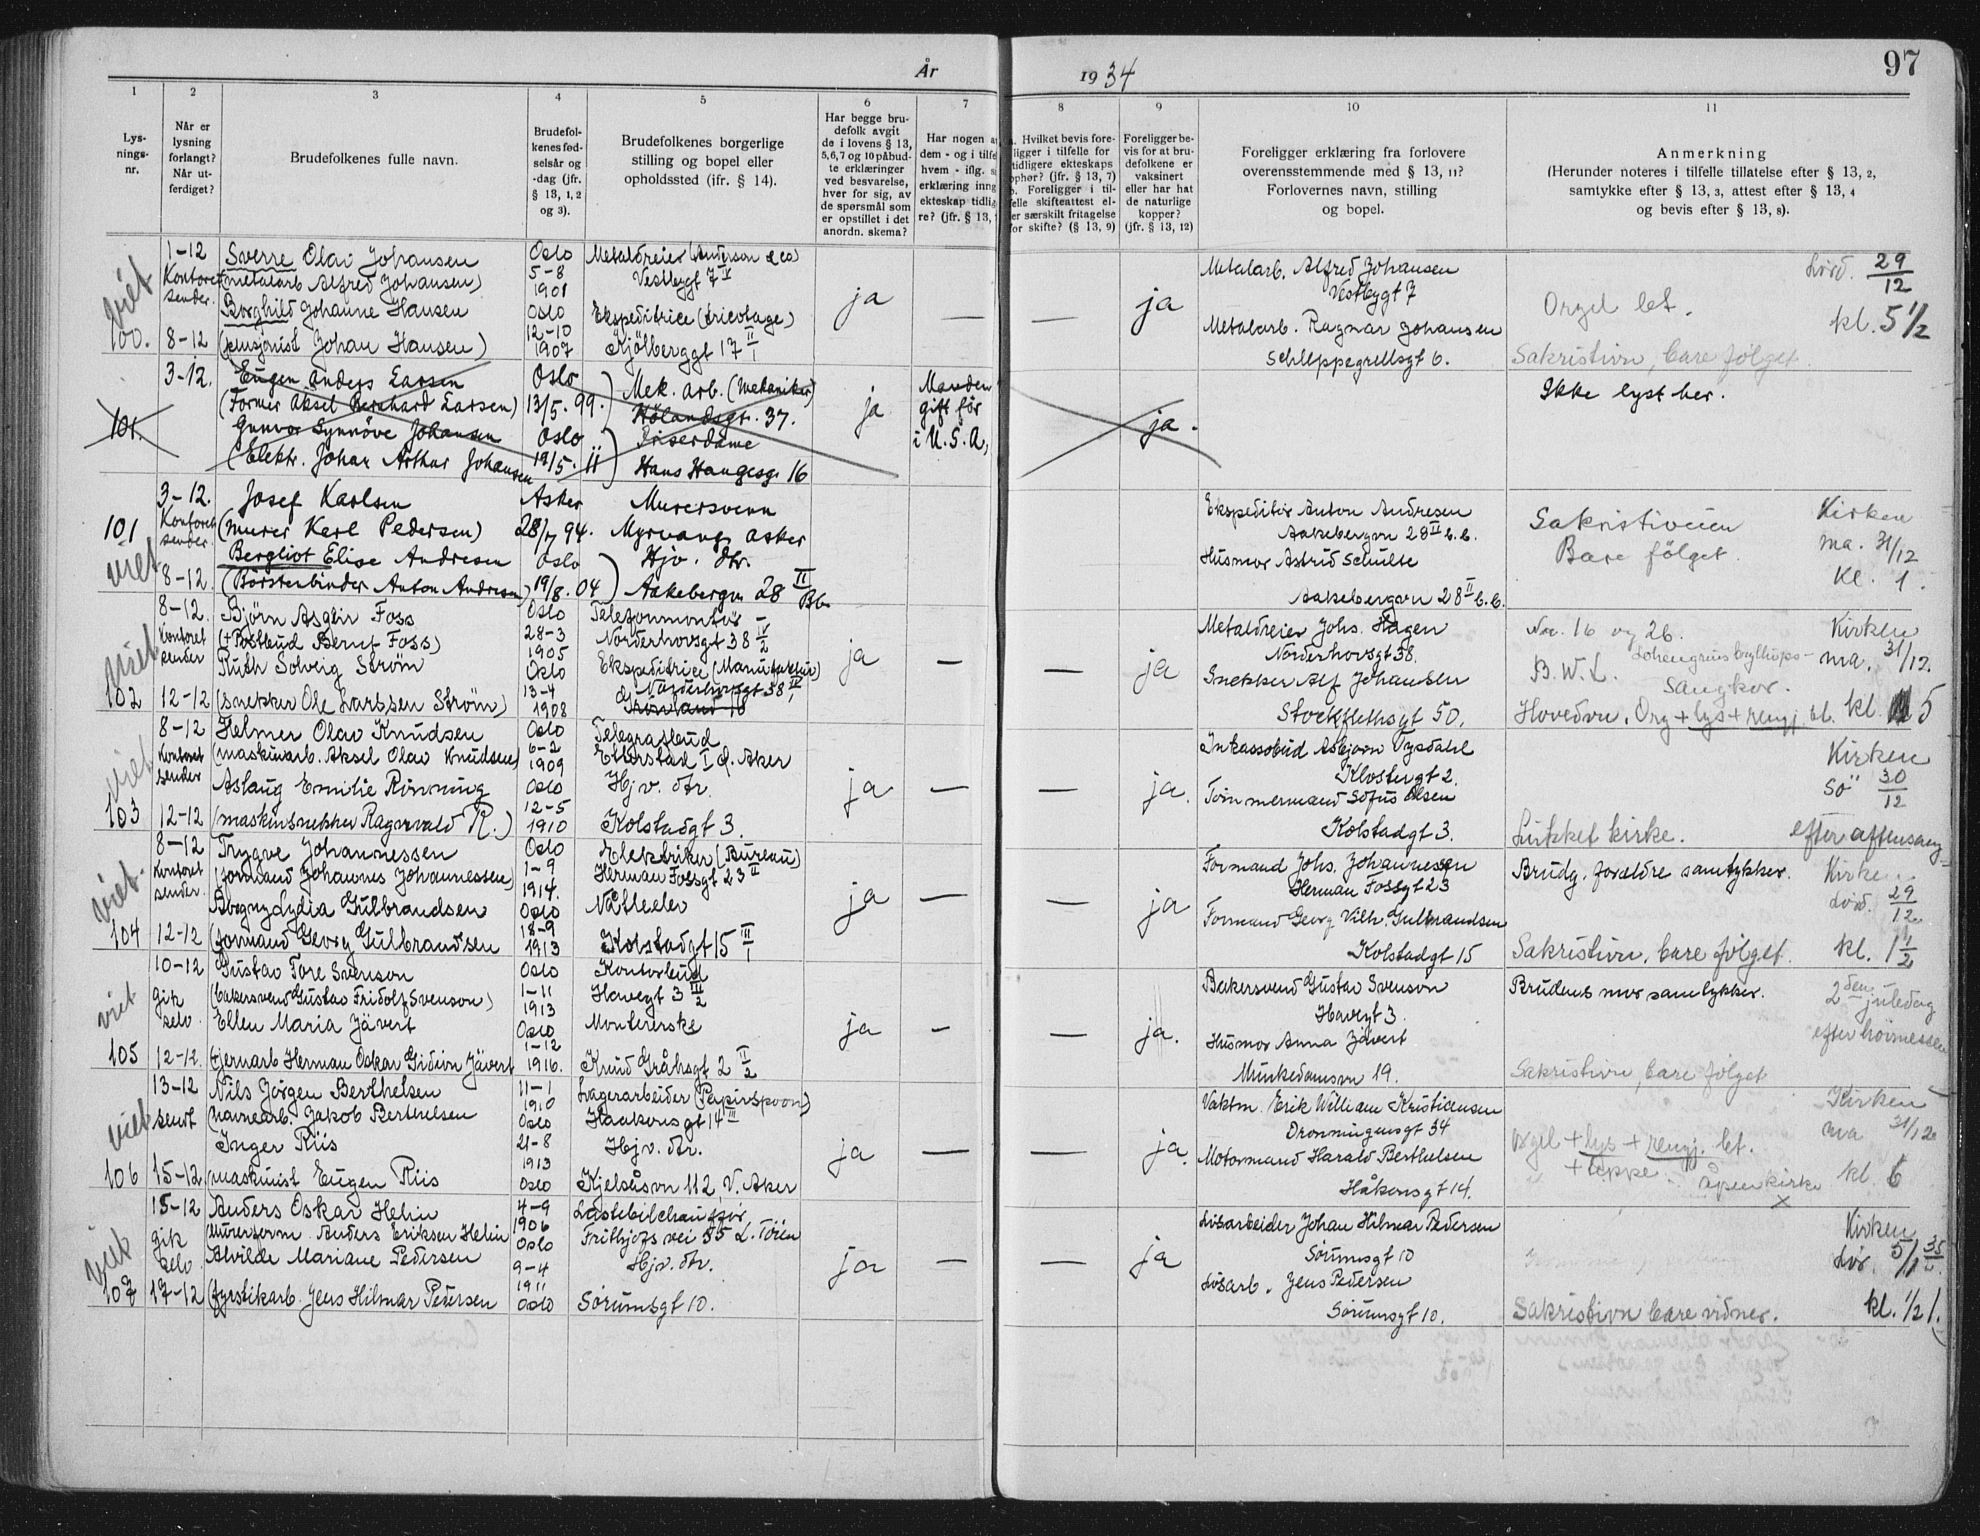 97
År 1934
1 2 3 4 5 6 7 8 9 10 11
Lys-
nings-
nr.
Når er
lysning
forlangt?
Når ut-
ferdiget?
Brudefolkenes fulle navn.
Brudefol-
kenes fød-
selsår og
-dag (jfr.
§ 13, 1, 2
og 3).
Brudefolkenes borgerlige
stilling og bopel eller
opholdssted (jfr. § 14).
Har begge bru-
defolk avgit
de i lovens § 13,
5, 6, 7 og 10 påbud-
te erklæringer
ved besvarelse,
hver for sig, av
de spørsmål som
er opstillet i det
anordn. skema?
Har nogen a
dem - og i tilfe
hvem - iflg. s
erklæring inng
ekteskap tidlig
re? (jfr. § 13,
a. Hvilket bevis fore-
ligger i tilfelle for
tidligere ekteskaps
ophør? (jfr. § 13, 7)
b. Foreligger i til-
felle skifteattest el-
er særskilt fritagelse
for skifte? (§ 13, 9)
Foreligger be-
vis for at bru-
defolkene er
vaksinert
eller har hat
de naturlige
kopper?
(jfr. § 13, 12)
Foreligger erklæring fra forlovere
overensstemmende med § 13, 11?
Forlovernes navn, stilling
og bopel.
Anmerkning
(Herunder noteres i tilfelle tillatelse efter § 13, 2,
samtykke efter § 13, 3, attest efter § 13, 4
og bevis efter § 13, 8).
viet
100.
1-12
Kontoret
sender.
8-12
Sverre Olav Johansen
(metalarb Alfred Johansen)
Borghild Johanne Hansen
(pensjonist Johan Hansen)
Oslo
5-8
1901
Oslo
12-10
1907
Metaldreier (Anderson & co)
Vestbygt 7 IV
Ekspeditrice (tricotage)
Kjölberggt 17 II/I
ja — — ja
Metalarb. Alfred Johansen
Vestbygt 7
Metalarb. Ragnar Johansen
Schleppegrellsgt 6.
Lörd. 29/12
Orgel bet. kl. 5 1/2
Sakristivn, bare følget
101.
3-12.
Eugen Anders Larsen
(Former Aksel Bernhard Larsen)
Gunvor Synnöve Johansen
(Elektr. Johan Arthur Johansen
Oslo
13/5. 99.
Oslo
19/5. 11
Mek. arb. (mekaniker)
Hölandsgt. 37.
Friserdame
Hans Haugesg. 16
ja
Manden
gift før
i U.S.A.
ja.
Ikke lyst her.
101
viet
3-12.
Kontoret
sender.
8-12.
Josef Karlsen
(murer Karl Pedersen)
Bergliot Elise Andresen
(Börstenbinder Anton Andresen)
Asker
28/7 94.
Oslo
19/8. 04
Murersvenn
Myrvang, Asker
Hjv. dtr.
Aakebergvn 28 II Bb.
Ekspeditör Anton Andresen
Aakebergvn 28 II b.b.
Husmor Astrid Schulse
Aakebergvn 28 II b.b.
Sakristiveien
Bare fölget.
Kirken
ma. 31/12
Kl. 1.
viet
102
8-12.
Kontoret
sender
12-12
Björn Asgeir Foss
(+Postbud Bernt Foss)
Ruth Solveig Ström
(snekker Ole Larssen Ström)
Oslo
28-3
1905
Oslo
13-4
1908
Telefonmontör -
Norderhovsgt 38 IV/2
Ekspeditrice (Manufaktur)
Norderhovsgt 38, IV
Grönland 18
ja — — ja
Metaldreier Johs. Hagen
Norderhovsgt 38.
Snekker Alf Johansen
Stockflethsgt 50.
No. 16 og 26.
B.W.L. Lohengrins bryllups-
sangkor.
Hovedvn. Org + lys + rengj. bet.
Kirken
ma. 31/12.
kl. 5
viet
103
8-12
Kontoret
sender
12-12
Helmer Olav Knudsen
(maskinarb. Aksel Olav Knudsen)
Aslaug Emilie Rönning
(maskinsnekker Ragnvald R.)
Oslo
6-2
1909
Oslo
12-5
1910
Telegrafbud
Etterstad I Ö. Aker
Hjv. dtr.
Kolstadgt 3.
ja — — ja.
Inkassobud Asbjörn Tysdahl
Klostergt 2.
Tömmermand Sofus Olsen
Kolstadgt 3.
Lukket kirke.
Kirken
Sö 30/12
efter aftensang
viet.
104
8-12
Kontoret
sender.
12-12
Trygve Johannessen
(formand Johannes Johannessen)
Borgny Lydia Gulbrandsen
(formand Georg Gulbrandsen
Oslo
1-9
1914.
Oslo
18-9
1913
Elektriker (Bureau)
Herman Fossgt 23 II
Nåtleder
Kolstadgt 15 III/I
ja — — ja
Formand Johs. Johannesen
Herman Fossgt 23
Formand Georg Vilh. Gulbrandsen
Kolstadgt 15
Brudg. foreldre samtykker.
Sakristivn. bare følget.
Kirken
Lörd. 29/12
kl. 1 1/2
viet
105
10-12
gik
selv.
12-12.
Gustav Tore Svenson
(bakersvend Gustav Fridolf Svenson)
Ellen Maria Jävert
(jernarb Herman Oskar Gideon Jävert
Oslo
1-11
1913
Oslo
1-12
1916.
Kontorbud
Havegt 3 III/2
Montererske
Knud Gråhsgt 2 II/2
ja - — ja.
Bakersvend Gustav Svenson
Havegt 3.
Husmor Anna Jävert
Munkedamsvn 19.
Brudens mor samtykker.
Sakristivn, bare følget
2den juledag
efter høimessen
viet
106
13-12
sendt
15-12
Nils Jörgen Berthelsen
(havnearb. Jakob Berthelsen
Inger Riis
(maskinist Eugen Riis
11-1
1910
Oslo
21-8
1913
Oslo
Lagerarbeider (Papirspoon)
Haakonsgt 14 III
Hjv. dtr.
Kjelsåsvn 112, V. Aker
ja — — ja.
Vaktm. Erik William Kristiensen
Dronningensgt 34
Motormand Harald Berthelsen
Håkonsgt 14.
Orgel + lys + rengj. bet.
+ teppe. åpen kirke
x
Kirken
ma 31/12
kl. 6
viet
107
15-12
gik
selv
17-12
Anders Oskar Helin
(murersvm. Anders Eriksen Helin
Alvilde Mariane Pedersen
(fyrstikarb. Jens Hilmar Pedersen
4-9
1906
Oslo
9-4
1911
Oslo
Lastebilchauffør
Frithjofs vei 85 L. Töien
Hjv. dtr.
Sörumsgt 10.
ja — — ja
Lösarbeider Johan Hilmar Pedersen
Sörumsgt 10
Lösarb. Jens Pedersen
Sörumsgt 10.
Sakristivn bare vidner.
Kirken
Lör. 5/1 35
kl. 1/2 1.